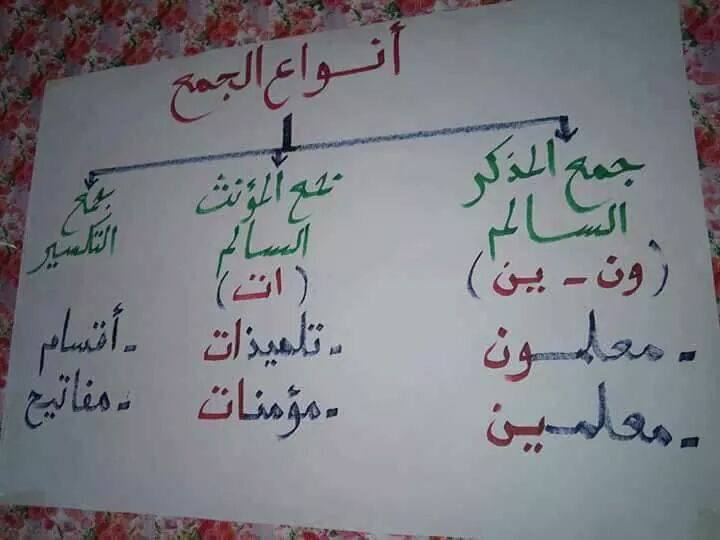 أنواع الجمع
جمع المذكر
السالم
(ون - ين)
- معلمون
- معلمين
جمع المؤنث
السالم
(ات)
- تلميذات
- مؤمنات
جمع
التكسير
- أقسام
- مفاتيح